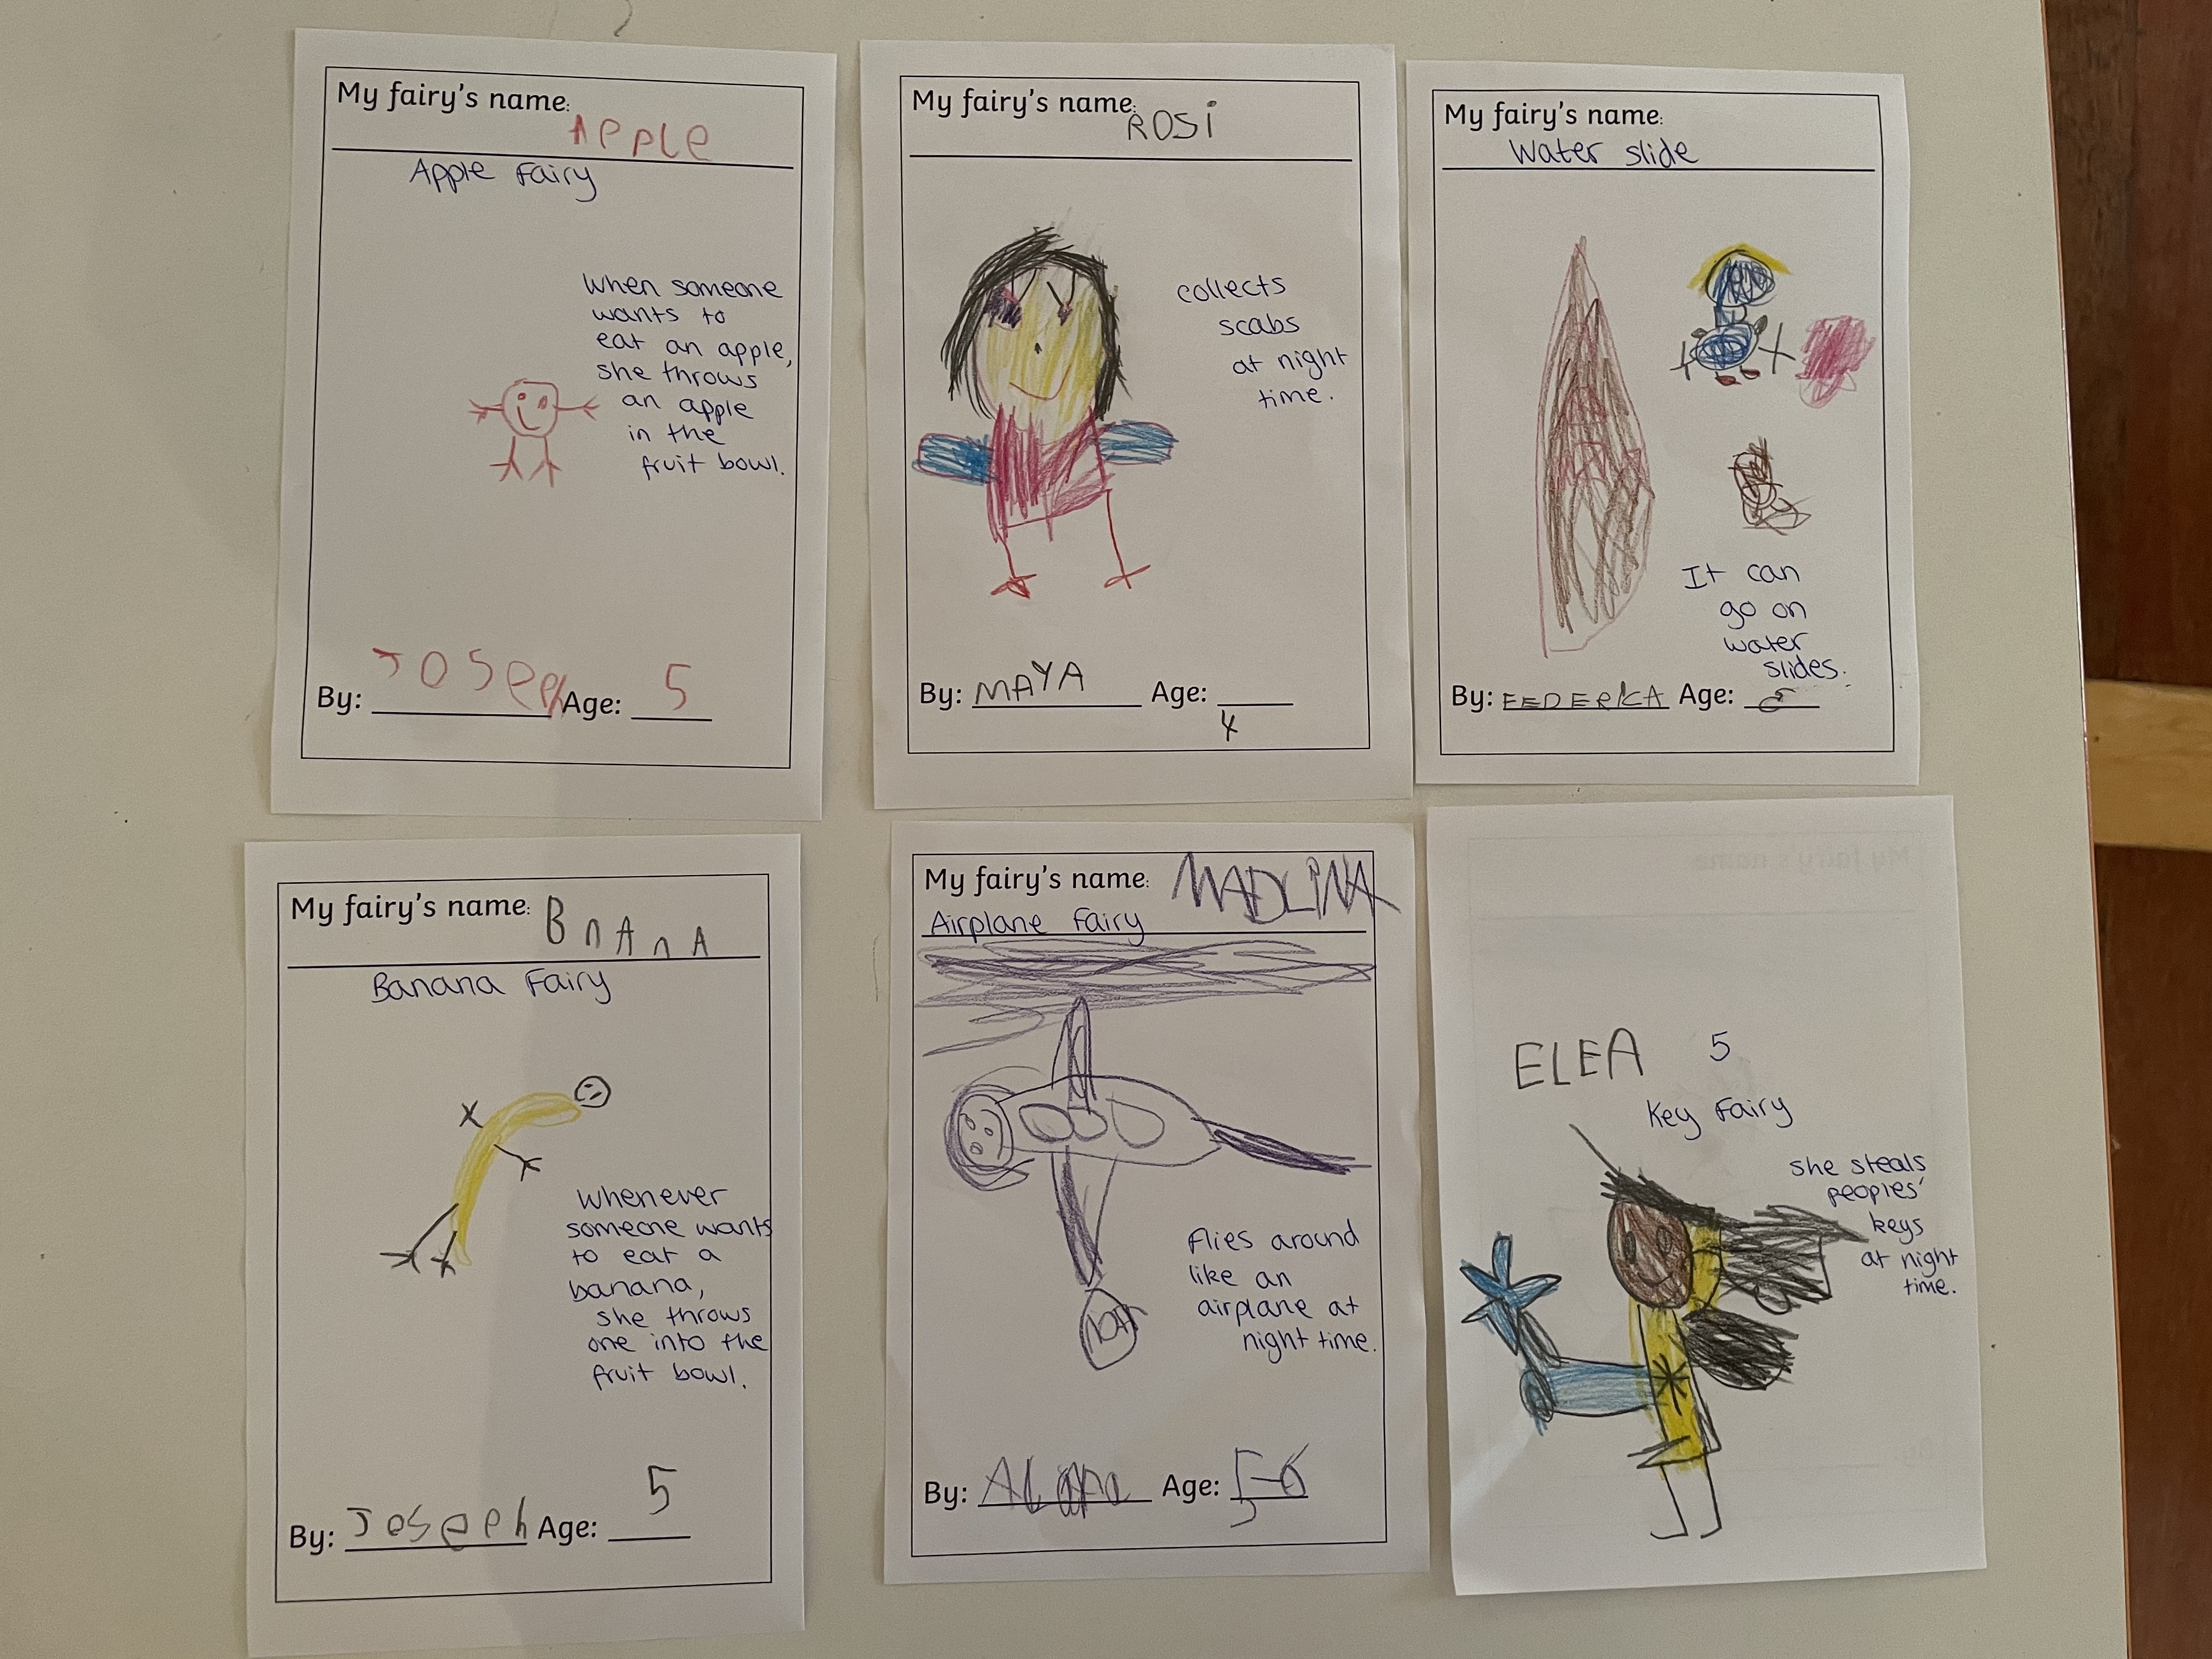 My fairy's name:
APPLe
Apple Fairy
When someone
wants to
eat an apple,
she throws
an apple
in the
fruit bowl.
By: JOSeph Age: 5
My fairy's name:
ROSi
collects
scabs
at night
time.
By: MAYA Age:
4
My fairy's name:
Water slide
It can
go on
water
slides.
By: FEDERICA Age:
My fairy's name: BnAnA
Banana Fairy
Whenever
someone wants
to eat a
banana,
she throws
one into the
fruit bowl.
By: Joseph Age: 5
My fairy's name: MADLINA
Airplane Fairy
Flies around
like an
airplane at
night time.
By: Age: 5-6
ELEA 5
Key Fairy
She steals
peoples'
keys
at night
time.